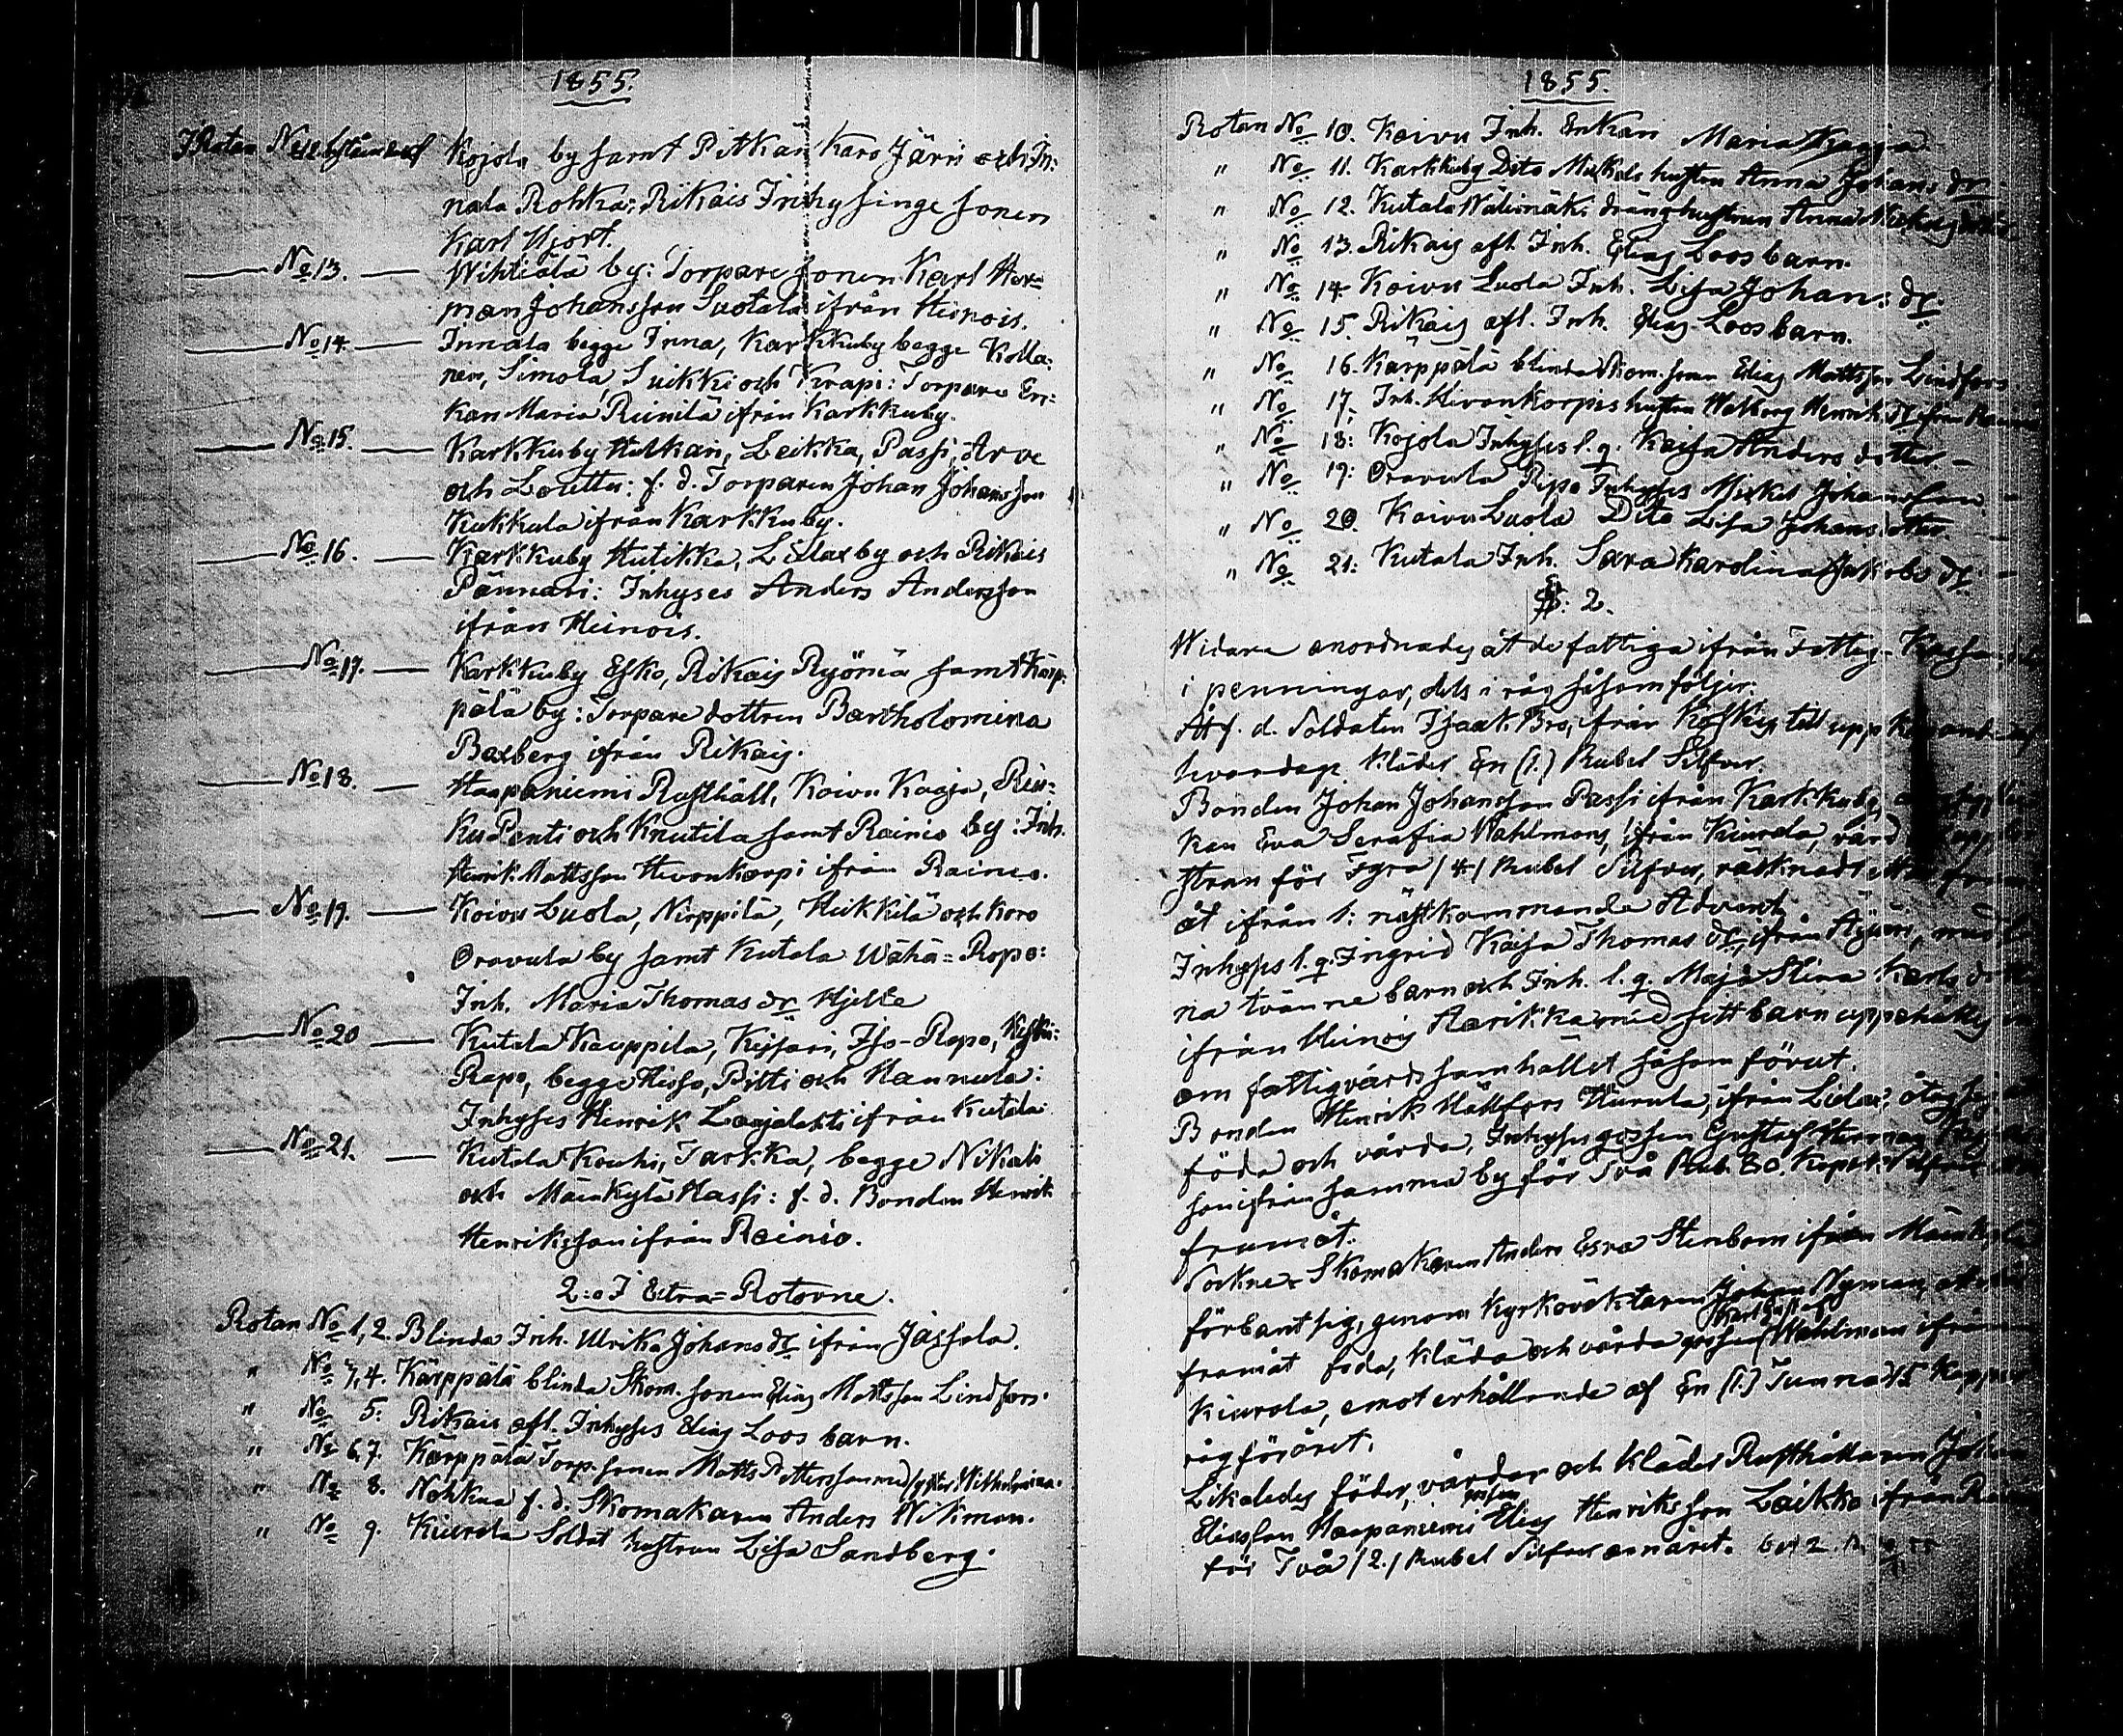 1855.
I Rotan N:o 12. bestående af Kojola by samt Pitkän Karo Järvi och In:
nala Rohka: Rikais Inhysinge sonen
Karl Hjort.
N:o 13. Wihtiälä by: Torpare sonen Karl Her=
man Johansson Suotala ifrån Heinois.
N:o 14. Innala begge Inna, Karkkuby begge Kolla:
nen, Simola, Suikki och Krapi: Torpare En:
kan Maria Riinilä ifrån Karkkuby.
N:o 15. Karkkuby Hulkari, Leikka, Passi, Arve
och Louttu: f. d. Torparen Johan Johansson
Kukkula ifrån Karkkuby.
N:o 16. Karkkuby Hutikka, Lielaxby och Rikais
Pännäri: Inhyses Anders Andersson
ifrån Heinois.
N:o 17. Karkkuby Esko, Rikais Ryömä samt Kärp:
pälä by: Torpare dottren Bartholomina
Baxberg ifrån Rikais.
N:o 18. Haapaniemi Rusthåll, Koivu Kagja, Rien:
Ku Penti och Knutila samt Rainio by: Inh.
Henrik Mattsson Hevonkorpi ifrån Rainio.
N:o 19. Koivu Luola, Nirppilä, Heikkilä och Koro
Oravula by samt Kutala Wähä=Ropo:
Inh. Maria Thomas dr Hjelte
N:o 20 Kutala Kauppila, Keijari, Iso-Ropo, Keski:
Ropo, begge Hisso, Pitti och Hannula:
Inhyses Henrik Laajalahti ifrån Kutala
N:o 21. Kutala Kouhi, Tarkka, begge Nikali
och Mäenkylä Hassi: f. d. Bonden Henrik
Henriksson ifrån Rainio.
2:o I Extra=Rotorne.
Rotan N:o 1, 2. Blinda Inh. Ulrika Johans dr ifrån Jässola.
" N:o 3, 4. Kärppälä blinda Skom. sonen Elias Mattsson Lindfors.
" N:o 5. Rikais afl. Inhyses Elias Loos barn.
" N:o 6, 7. Kärppälä Torp. sonen Matts Pettersson med syster Wilhelmina.
" N:o 8. Nohkua f. d. Skomakaren Anders Wikman.
" N:o 9. Kiurola Soldat hustrun Lisa Sandberg.
1855.
Rotan N:o 10. Koivu Inh. Enkan Maria Kagja
" N:o 11. Karkkuby Dito Mickels hustru Anna Johans dr
" N:o 12. Kutala Wälimäki dräng hustrun Anna
" N:o 13. Rikais afl. Inh. Elias Loos barn.
" N:o 14. Koivu Luola Inh. Lisa Johans dr.
" N:o 15. Rikais afl. Inh. Elias Loos barn.
" N:o 16. Kärppälä blinda Skom. sonen Elias Mattsson Lindfors
" N:o 17. Inh. Hevonkorpis hustru Walborg Henriks dr ifrån Rainio
" N:o 18: Kojola Inhyses l. q. Kaisa Anders dotter –
" N:o 19: Oravula Repo Inhyses Mickel Johansson –
" N:o 20. Koivu Luola Dito Lisa Johans dotter. –
" N:o 21: Kutala Inh. Sara Karolina Jakobs dr. –
§: 2.
Widare anordnades åt de fattiga ifrån Fattig-Kassan
i penningar, dels i råg såsom följer:
Åt f. d. Soldaten Isaak Bro, ifrån Koskis till upp
hvardags kläder En (1.) Rubel Silfver.
Bonden Johan Johansson Passi ifrån Karkkuby,
kan Eva Serafia Wahlmans, ifrån Kiurola, vård
stran för Fyra /4./ Rubel Silfver, räknadt
åt ifrån 1: nästkommande Advent.
Inhyses l. q. Ingrid Kaisa Thomas dr, ifrån Äijäri, med
na tvänne barn och Inh. l. q. Maja Stina Karls dotter
ifrån Heinois Aarikka med sitt barn uppehålles
om fattigvårdssamhället såsom förut.
Bonden Henrik Hällfors Hurula, ifrån Lielax, åtog sig
föda och vårda, Inhyses gossen Gustaf Herman
son ifrån samma by för Två Rub. 80. Kopek Silfver
framåt.
Sockne-Skomakaren Anders Esra Stenbom ifrån Mäenkylä
förbant sig, genom Kyrkovaktaren Johan Nyman, at
framåt föda, kläda och vårda gossen Karl Gustaf Wahlman ifrån
Kiurola, emot erhållande af En (1.) Tunna 15 Kappar
råg för året.
Likaledes föder, vårdar och kläder Rusthållaren Johan
Eliasson Haapaniemi gossen Elias Henriksson Laikko ifrån
för Två /2./ Rubel Silfver om året.